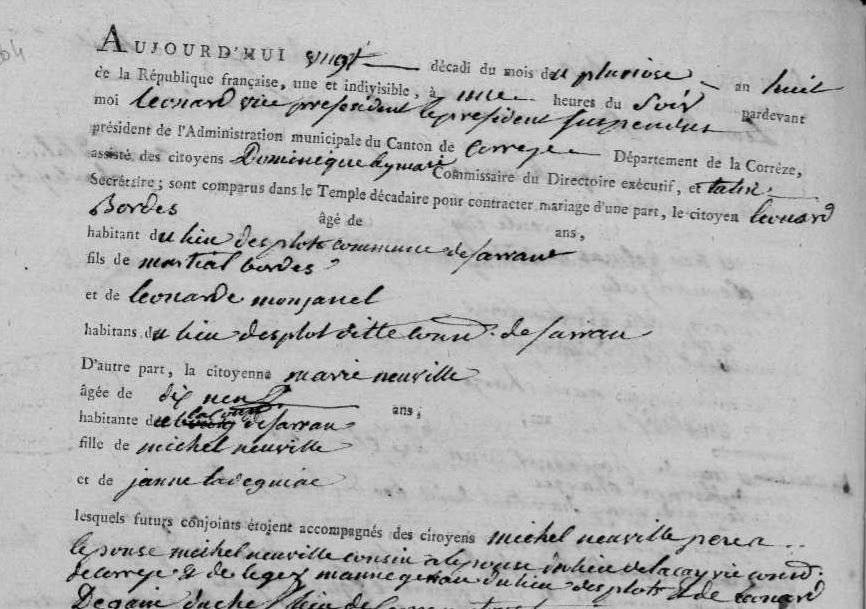 AUJOURD'HUI vingt décadi du mois du pluviose an huit
de la République française, une et indivisible, à une heures du Soir pardevant
moi leonard vice president le president suspendus
président de l'Administration municipale du Canton de Correze Département de la Corrèze,
assisté des citoyens Dominique Eymard Commissaire du Directoire exécutif, et
Secrétaire; sont comparus dans le Temple décadaire pour contracter mariage d'une part, le citoyen leonard
Bordes âgé de ans,
habitant du lieu des plots commune de Sarran
fils de martial bordes
et de leonarde monjanel
habitans du lieu des plot ditte de Sarran
D'autre part, la citoyenne marie neuville
âgée de dix neuf ans,
habitante de Sarran
fille de michel neuville
et de janne
lesquels futurs conjoints étoient accompagnés des citoyens michel neuville pere a
lepouse michel neuville cousin a lepouse du lieu de
de correze & de du lieu des plots & de leonard
du lieu de